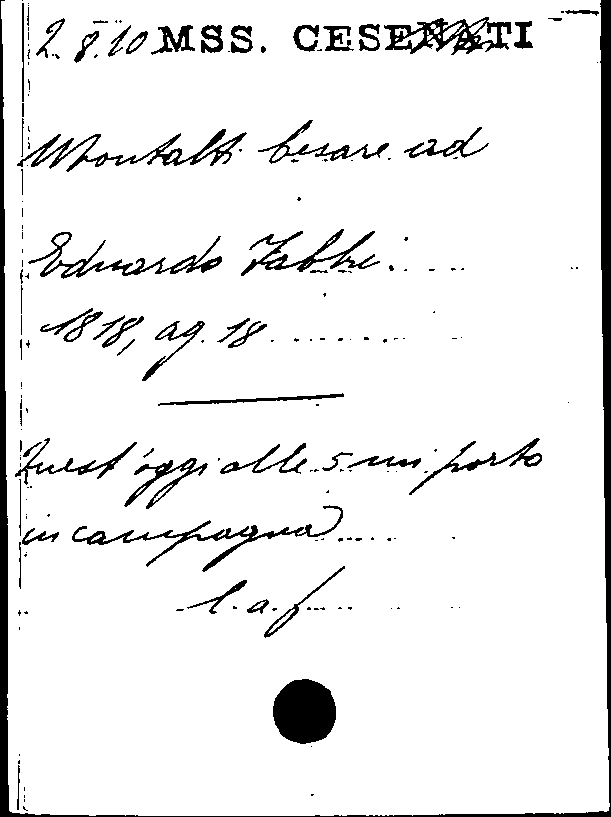 2.8.10 MSS. CESENATI
Montalti Cesare ad
Eduardo Fabbri.
1818, ag. 18
Quest'oggi alle 5 mi porto
in campagna
l. a. f.